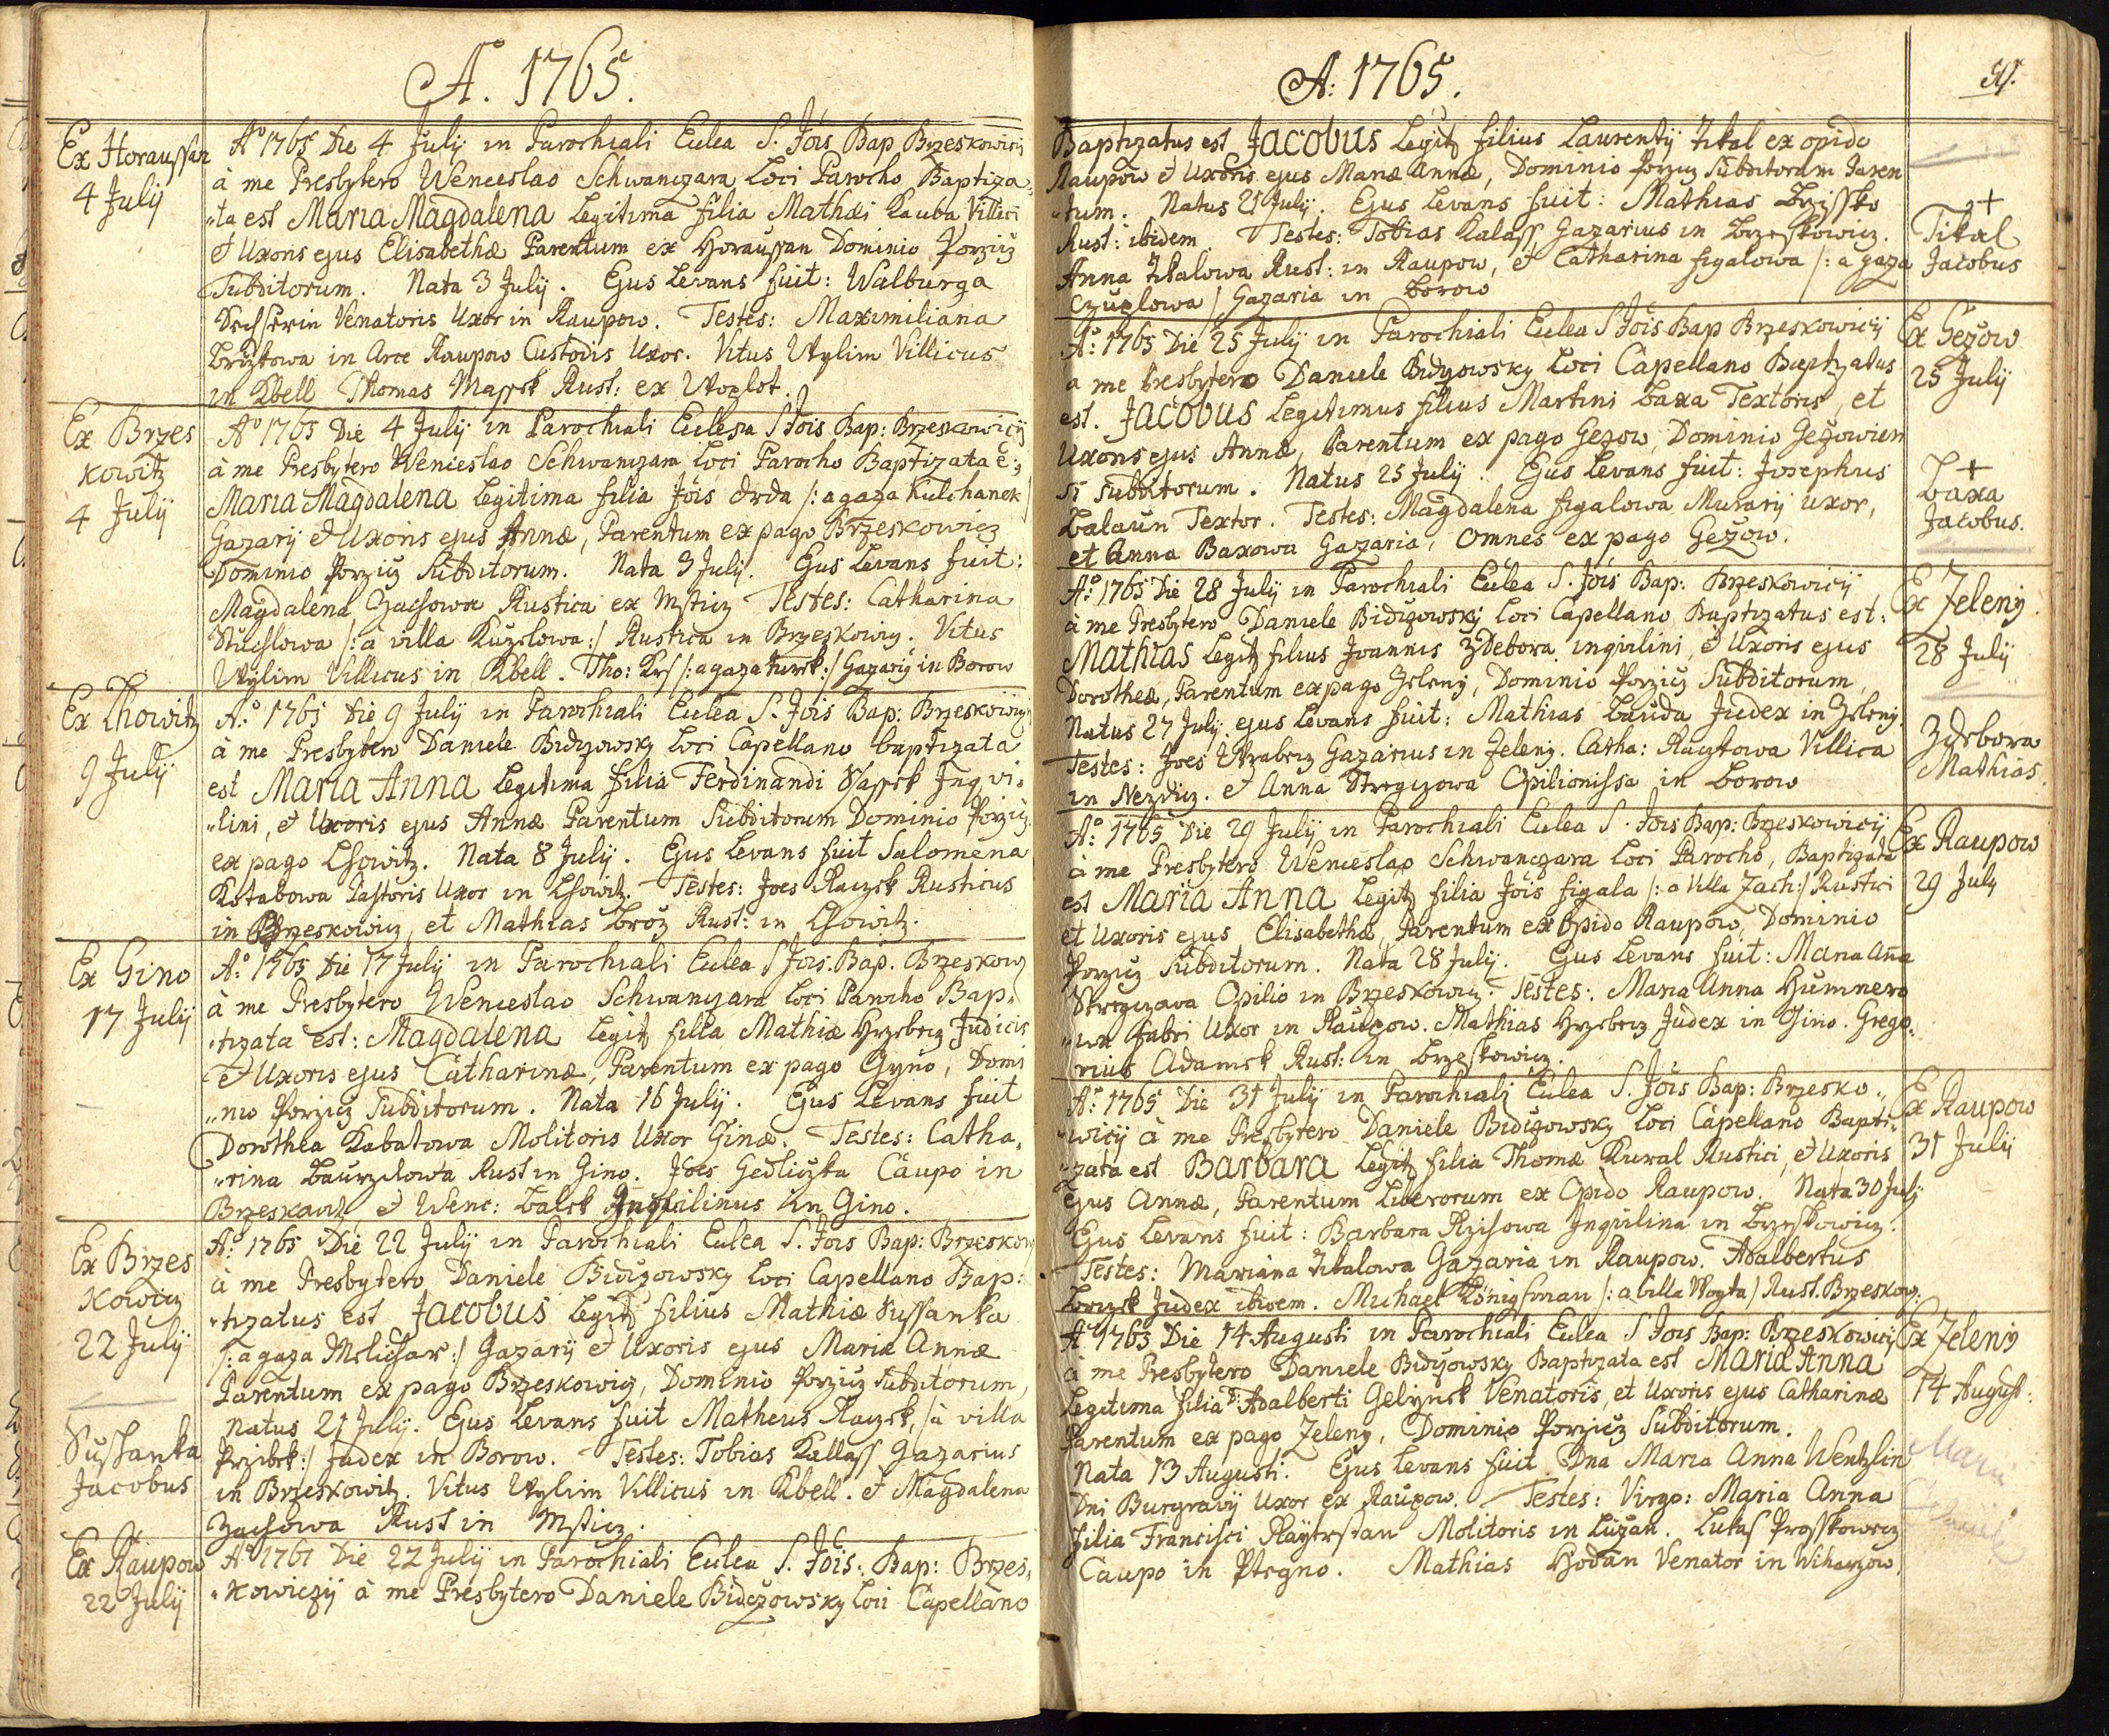 A. 1765.
Ex Horaussan
4 July
Aº 1765 Die 4 July in Parochiali Eulea S. Jois Bap Brzeskowicij
à me Presbytero Wenceslao Schwanczara Loci Parocho Baptiza„
„ta est Maria Magdalena Legitima filia Mathæi Kauba Villici
et Uxoris ejus Elisabethæ Parentum ex Horaussan Dominio Porzicz
Subditorum. Nata 3 July. Ejus Levans fuit: Walburga
Venatoris Uxor in Raupow. Testes: Maximiliana
in Arce Raupow Custodis Uxor. Vitus Wylim Villicus
in Kbell Thomas Massek Rust: ex Woplot.
Ex Brzes
kowitz
4 July
Aº 1765 Die 4 July in Parochiali Eccllesia S Jois Bap: Brzeskowicij
à me Presbytero Wenceslao Schwanczara Loci Parocho Baptizata e:
Maria Magdalena Legitima filia Jois Drda /: a gaza Kulchanek
Gazarij et Uxoris ejus Annæ, Parentum ex pago Brzeskowicz
Dominio Porzicz Subditorum. Nata 3 July. Ejus Levans fuit:
Magdalena Zachowa Rustica ex Msticz Testes: Catharina
/: à villa Kuzelowa:/ Rustica in Brzeskowicz. Vitus
Wylim Villicus in Kbell. Tho: /: a gaza Turek:/ Gazarij in Borow
Ex Lhowitz
9 July
A:º 1765 Die 9 July in Parochiali Eulea S. Jois Bap: Brzeskowicij
à me Presbytero Daniele Bidczowsky Loci Capellano baptizata
est Maria Anna Legitima filia Ferdinandi Wassek Inqvi„
„lini, et Uxoris ejus Annæ Parentum Subditorum Dominio Porzicz
ex pago Lhowitz. Nata 8 July. Ejus Levans fuit Salomena
Kotabowa Pastoris Uxor in Lhowitz. Testes: Joes Raczek Rusticus
in Brzeskowicz, et Mathias Broz Rust: in Lhowitz.
Ex Gino
17 July
A:º 1765 Die 17 July in Parochiali Eulea S Jois. Bap. Brzeskow
à me Presbytero Wenceslao Schwanczara Loci Parocho Bap„
„tizata est: Magdalena Legit filia Mathiæ Hrzebecz Judicis
et Uxoris ejus Catharinæ, Parentum ex pago Gyno, Domi
„nio Porzicz Subditorum. Nata 16 July. Ejus Levans fuit
Dorothea Kabatowa Molitoris Uxor Ginæ. Testes: Catha„
„rina Rust in Gino. Joes Gedliczka Caupo in
Brzeskowitz et Wenc: Balek Inqvilinus in Gino.
Ex Brzes
kowicz
22 July
Sussanka
Jacobus
A:º 1765 Die 22 July in Parochiali Eulea S. Jois Bap: Brzeskow
à me Presbytero Daniele Bidczowsky Loci Capellano Bap:
„tizatus est Jacobus Legit filius Mathiæ Sussanka
/: a gaza Melichar:/ Gazarij et Uxoris ejus Mariæ Annæ
Parentum ex pago Brzeskowicz, Dominio Porzicz Subditorum,
Natus 21 July. Ejus Levans fuit Matheus Raczek, /à villa
Przibek:/ Judex in Borow. Testes: Tobias Kallass Gazarius
in Brzeskowitz. Vitus Wylim Villicus in Kbell. et Magdalena
Zachowa Rust in Msticz.
Ex Raupow
22 July
Aº 1761 Die 22 July in Parochiali Eulea S. Jois. Bap: Brzes„
„kowiczij à me Presbytero Daniele Bidczowsky Loci Capellano
A: 1765.
Baptizatus est Jacobus Legit filius Laurentij Tikal ex opido
Raupow et Uxoris ejus Mariæ Annæ, Dominio Porzicz Subditorum Paren
„tum. Natus 21 July. Ejus Levans fuit: Mathias
Rust: ibidem. Testes: Tobias Kalass Gazarius in Brzeskowicz.
Anna Tikalowa Rust: in Raupow, et Catharina figalowa /: a gaza
Czuplowa / Gazaria in Borow
+
Tikal
Jacobus
A:º 1765 Die 25 July in Parochiali Eulea S Jois Bap Brzeskowicij
a me Presbytero Daniele Bidczowsky Loci Capellano Baptizatus
est. Jacobus Legitimus filius Martini Baxa Textoris, et
Uxoris ejus Annæ, Parentum ex pago Gezow, Dominio Gezowien
si Subditorum. Natus 25 July. Ejus Levans fuit: Josephus
Balaun Textor. Testes: Magdalena figalowa Murarij uxor,
et Anna Baxowa Gazaria, omnes ex pago Gezow.
Ex Gezow
25 July
+
Baxa
Jacobus.
A:º 1765 Die 28 July in Parochiali Eulea S. Jois Bap: Brzeskowicij
à me Presbytero Daniele Bidczowsky Loci Capellano Baptizatus est:
Mathias Legit filius Joannis Zdebora inqvilini, et Uxoris ejus
Dorotheæ, Parentum ex pago Zeleny, Dominio Porzicz Subditorum,
Natus 27 July. ejus Levans fuit: Mathias Bauda Judex in Zeleny.
Testes: Joes Wrabecz Gazarius in Zeleny. Catha: Raczkowa Villica
in Nezdicz. et Anna Opilionissa in Borow
Ex Zeleny.
28 July
Zdebora
Mathias.
A:º 1765 Die 29 July in Parochiali Eulea S. Jois Bap: Brzeskowicij
à me Presbytero Wenceslao Schwanczara Loci Parocho, Baptizata
est Maria Anna Legit filia Jois figala /: a villa Zach:/ Rustici
et Uxoris ejus Elisabethæ, Parentum ex Opido Raupow, Dominio
Porzicz Subditorum. Nata 28 July. Ejus Levans fuit: Maria Ana
Opilio in Brzeskowicz. Testes: Maria Anna Humnero
„wa fabri Uxor in Raupow. Mathias Hrzebecz Judex in Gino. Grego„
rius Adamek Rust: in Brzeskowicz.
Ex Raupow
29 July
A:º 1765 Die 31 July in Parochiali Eulea S. Jois Bap: Brzesko„
„wicij à me Presbytero Daniele Bidczowsky Loci Capellano Bapti„
„zata est Barbara Legit filia Thomæ Kural Rustici, et Uxoris
ejus Annæ, Parentum Liberorum ex Opido Raupow. Nata 30 July
Ejus Levans fuit: Barbara Inqvilina in Brzeskowicz.
Testes: Mariana Tikalowa Gazaria in Raupow. Adalbertus
Judex ibidem. Michael Königsman /: a villa Woyta / Rust. Brzeskow:
Ex Raupow
31 July
Aº 1765 Die 14 Augusti in Parochiali Eulea S Jois Bap: Brzeskowicij
à me Presbytero Daniele Bidczowsky Baptizata est Maria Anna
Legitima filia D: Adalberti Gelynek Venatoris, et Uxoris ejus Catharinæ
Parentum ex pago Zeleny, Dominio Porzicz Subditorum.
Nata 13 Augusti. Ejus Levans fuit Dna Maria Anna Wentzlin
Dni Burgravij Uxor ex Raupow. Testes: Virgo: Maria Anna
filia Francisci Molitoris in Luzan. Lukas Prosskowecz
Caupo in Ptegno. Mathias Hodan Venator in
Ex Zeleny
14 August: